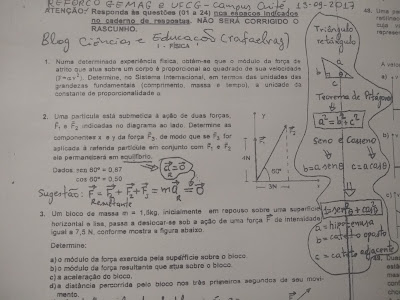 REFORÇO FEMAG e UFCG-campus Cuité, 15-09-2017
ATENÇÃO: Responda às questões (01 a 24) nos espaços indicados
no caderno de respostas. NÃO SERÁ CORRIGIDO O
RASCUNHO.
Blog Ciência e Educação (rafaelrag)
I - FÍSICA
1. Numa determinada experiência física, obtém-se que o módulo da força de
atrito que atua sobre um corpo é proporcional ao quadrado de sua velocidade
Determine, no Sistema Internacional, em termos das unidades das
grandezas fundamentais (comprimento, massa e tempo), a unidade da
constante de proporcionalidade
2. Uma partícula está submetida à ação de duas forças,
F₁ e F₂ indicadas no diagrama ao lado. Determine as
componentes x e y da força F₃, de modo que se F₃ for
aplicada à referida partícula em conjunto com F₁ e F₂
ela permanecerá em equilíbrio.
Dados: cos 60° = 0,87
cos 60° = 0,50
a⃗ = 0⃗
4N
3N
y
x
Sugestão: F⃗ = F⃗₁ + F⃗₂ + F⃗₃ = ma⃗ = 0⃗
Resultante
3. Um bloco de massa m = 1,5kg, inicialmente em repouso sobre uma superfície
horizontal e lisa, passa a deslocar-se sob a ação de uma força F de intensidade
igual a 7,5 N, conforme mostra a figura abaixo.
Determine:
a) o módulo da força exercida pela superfície sobre o bloco.
b) o módulo da força resultante que atua sobre o bloco.
c) a aceleração do bloco.
d) a distância percorrida pelo bloco nos três primeiros segundos de seu movi-
mento.
Triângulo
retângulo
a
b
c
Teorema de Pitágoras
a² = b² + c²
Seno e Cosseno
b = a senθ
a = hipotenusa
b = cateto oposto
c = cateto adjacente